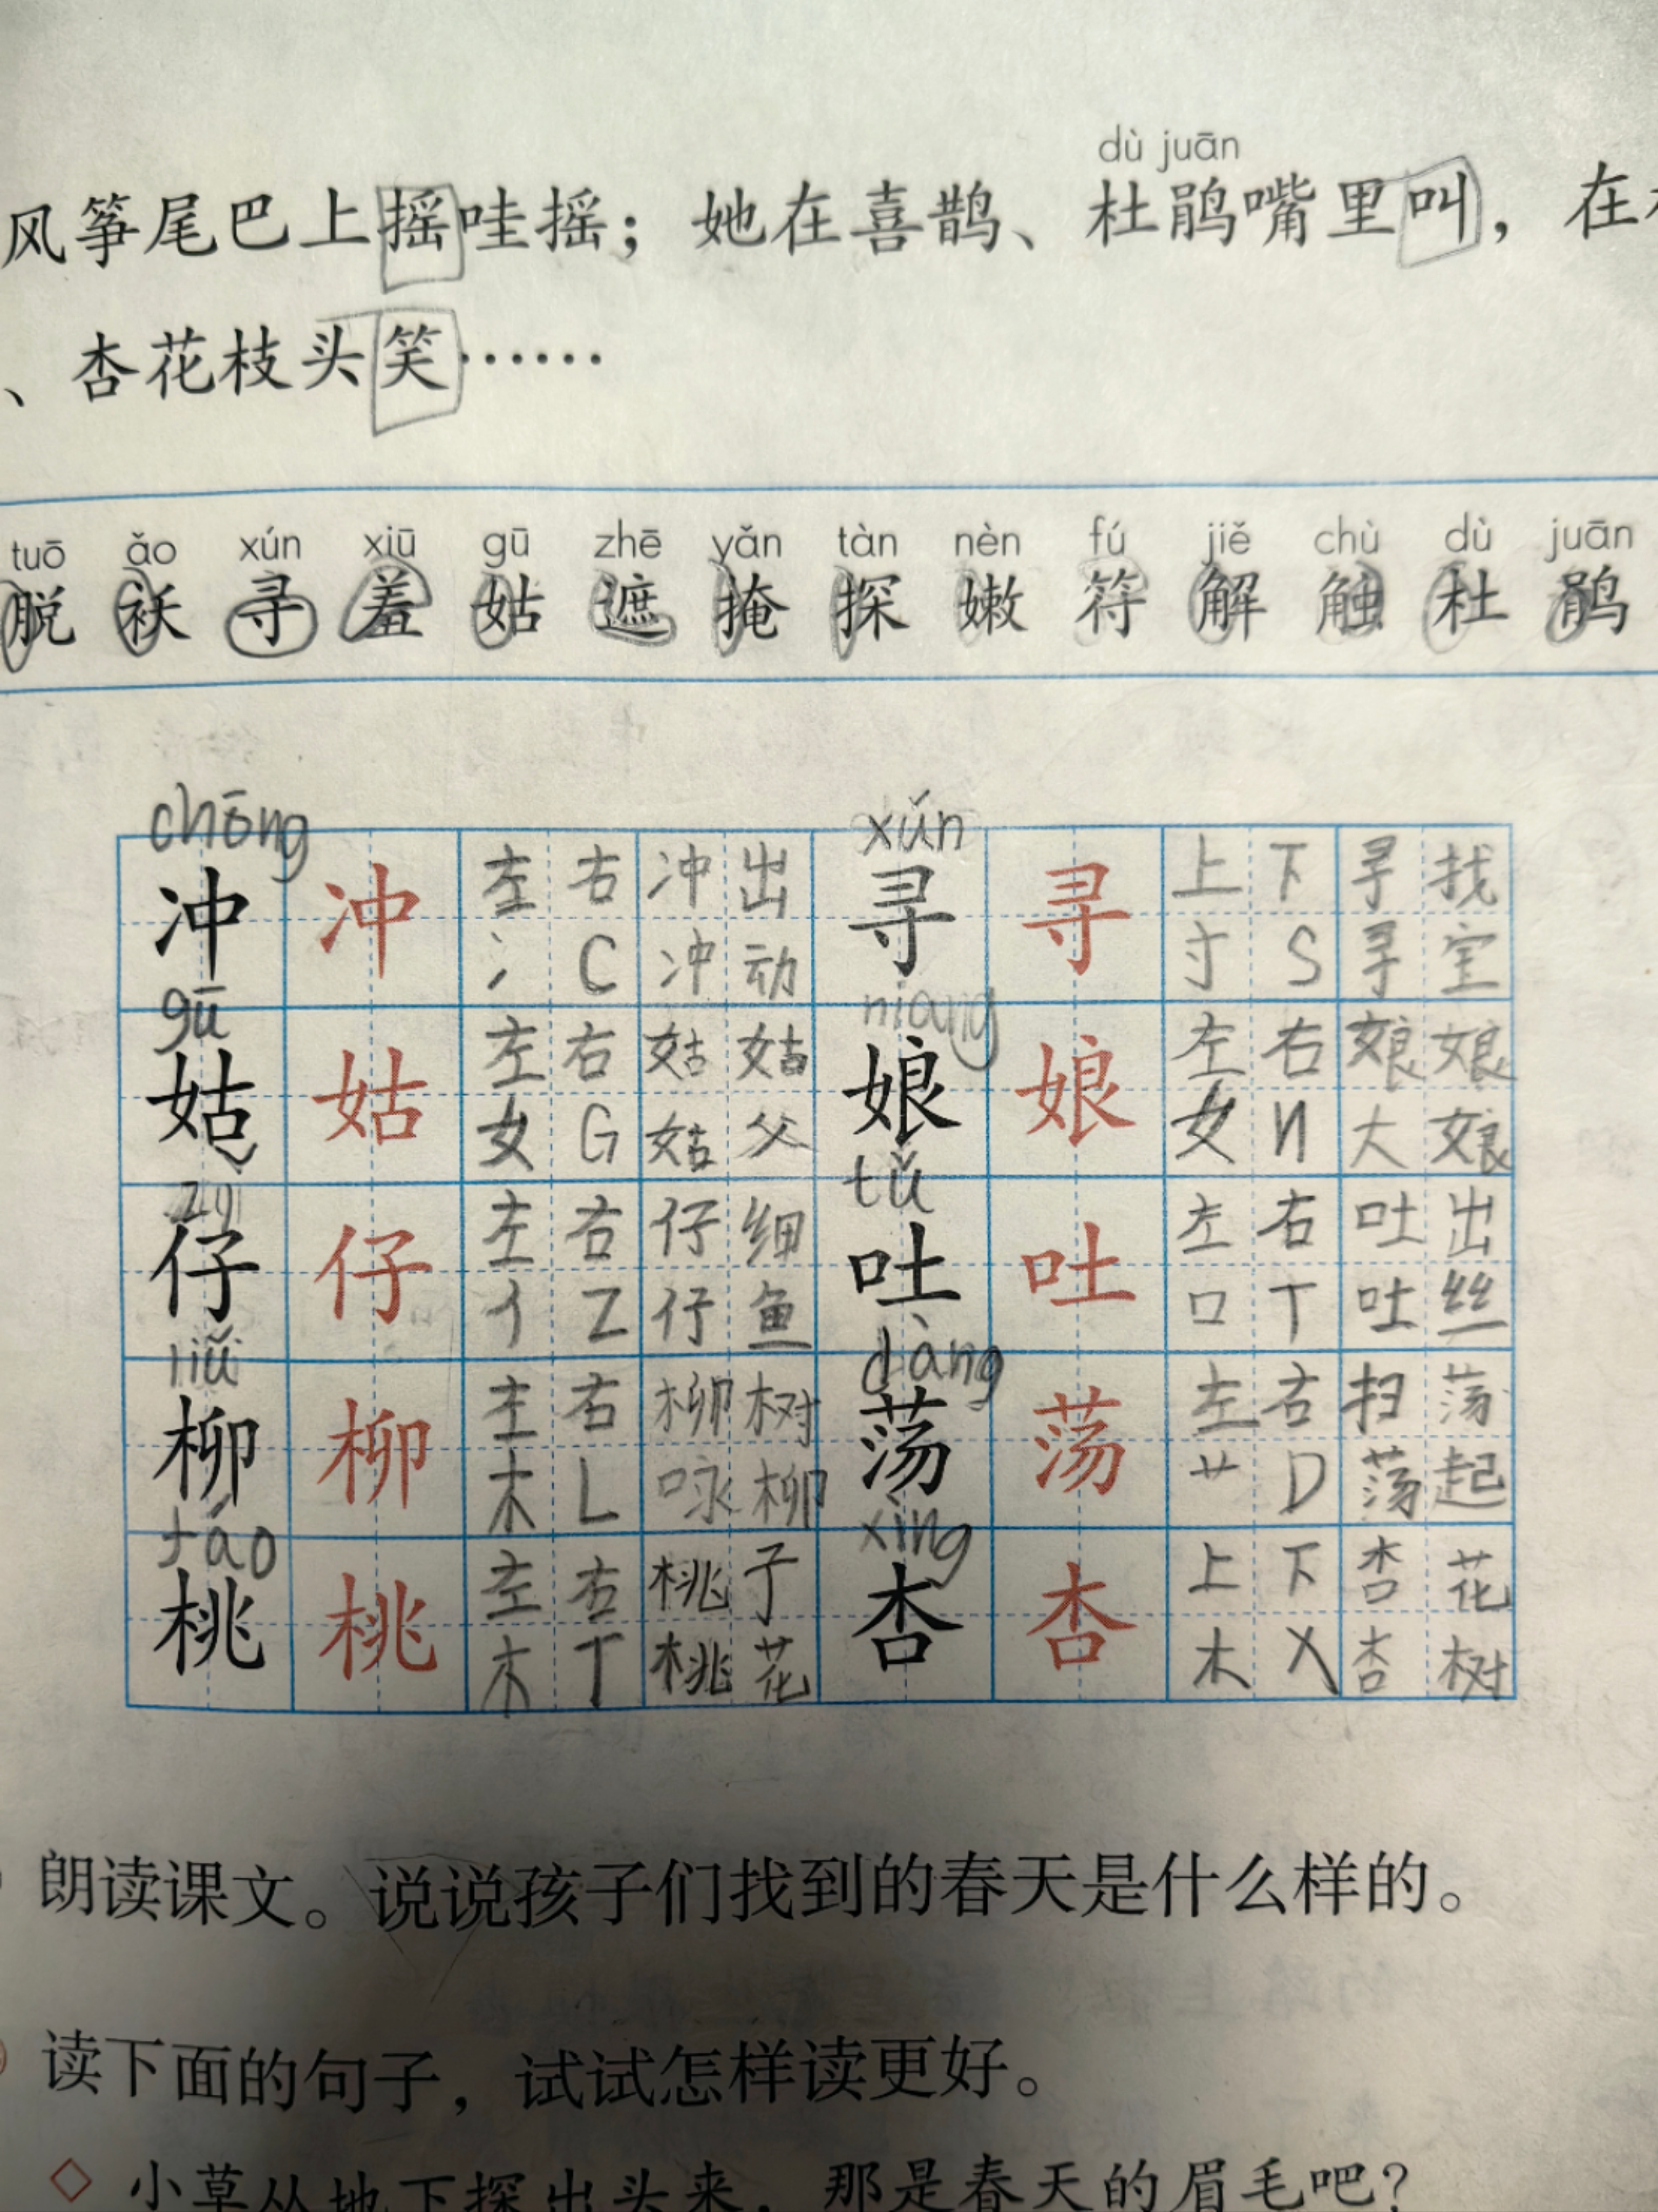 dù juān
风筝尾巴上摇哇摇；她在喜鹊、杜鹃嘴里叫，在
、杏花枝头笑……
tuō ǎo xún xiū gū zhē yǎn tàn nèn fú jiě chù dù juān
脱 袄 寻 羞 姑 遮 掩 探 嫩 符 解 触 杜 鹃
chōng xún
冲 冲 左 右 冲 出 寻 寻 上 下 寻 找
冫 C 冲 动 寸 S 寻 宝
gū niang
姑 姑 左 右 姑 姑 娘 娘 左 右 娘 娘
女 G 姑 父 女 N 大 娘
zǐ tǔ
仔 仔 左 右 仔 细 吐 吐 左 右 吐 出
亻 Z 仔 鱼 口 T 吐 丝
liǔ dàng
柳 柳 左 右 柳 树 荡 荡 左 右 扫 荡
木 L 咏 柳 艹 D 荡 起
táo xìng
桃 桃 左 右 桃 子 杏 杏 上 下 杏 花
木 T 桃 花 木 X 杏 树
朗读课文。说说孩子们找到的春天是什么样的。
读下面的句子，试试怎样读更好。
◇ 小草从地下探出头来，那是春天的眉毛吧？